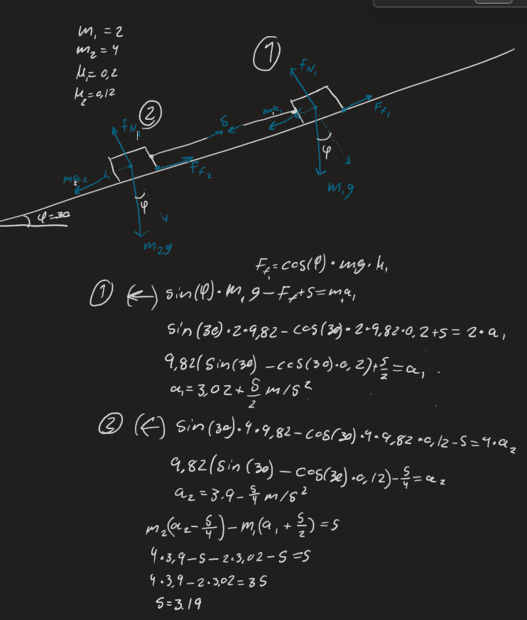 m₁ = 2
m₂ = 4
μ₁ = 0,2
μ₂ = 0,12
①
fN₁
ma₁
Ff₁
φ
m₁g
②
fN₂
S
ma₂
Ff₂
φ
m₂g
φ=30
Ff₁ = cos(φ) · mg · μ₁
① (←) sin(φ) · m₁g − Ff + S = ma₁
sin(30) · 2 · 9,82 − cos(30) · 2 · 9,82 · 0,2 + S = 2 · a₁
9,82(sin(30) − cos(30) · 0,2) + S/2 = a₁
a₁ = 3,02 + S/2 m/s²
② (←) sin(30) · 4 · 9,82 − cos(30) · 4 · 9,82 · 0,12 − S = 4 · a₂
9,82(sin(30) − cos(30) · 0,12) − S/4 = a₂
a₂ = 3.9 − S/4 m/s²
m₂(a₂ − S/4) − m₁(a₁ + S/2) = S
4 · 3,9 − S − 2 · 3,02 − S = S
4 · 3,9 − 2 · 3,02 = 3S
S = 3.19